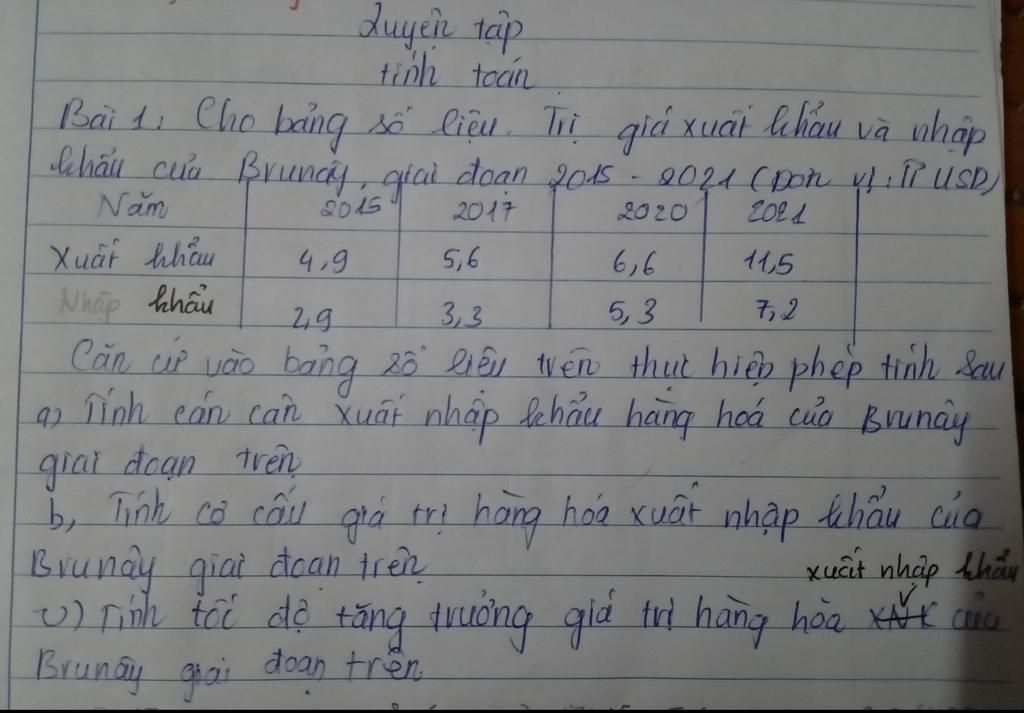 Luyện tập
tính toán
Bài 1: Cho bảng số liệu. Trị giá xuất khẩu và nhập
khẩu của Brunây, giai đoạn 2015 - 2021 (Đơn vị: Tỉ USD)
Năm 2015 2017 2020 2021
Xuất khẩu 4,9 5,6 6,6 11,5
Nhập khẩu 2,9 3,3 5,3 7,2
Căn cứ vào bảng số liệu trên thực hiện phép tính sau
a) Tính cán cân xuất nhập khẩu hàng hoá của Brunây
giai đoạn trên
b, Tính cơ cấu giá trị hàng hóa xuất nhập khẩu của
Brunây giai đoạn trên
xuất nhập khẩu
c) Tính tốc độ tăng trưởng giá trị hàng hóa XNK của
Brunây giai đoạn trên